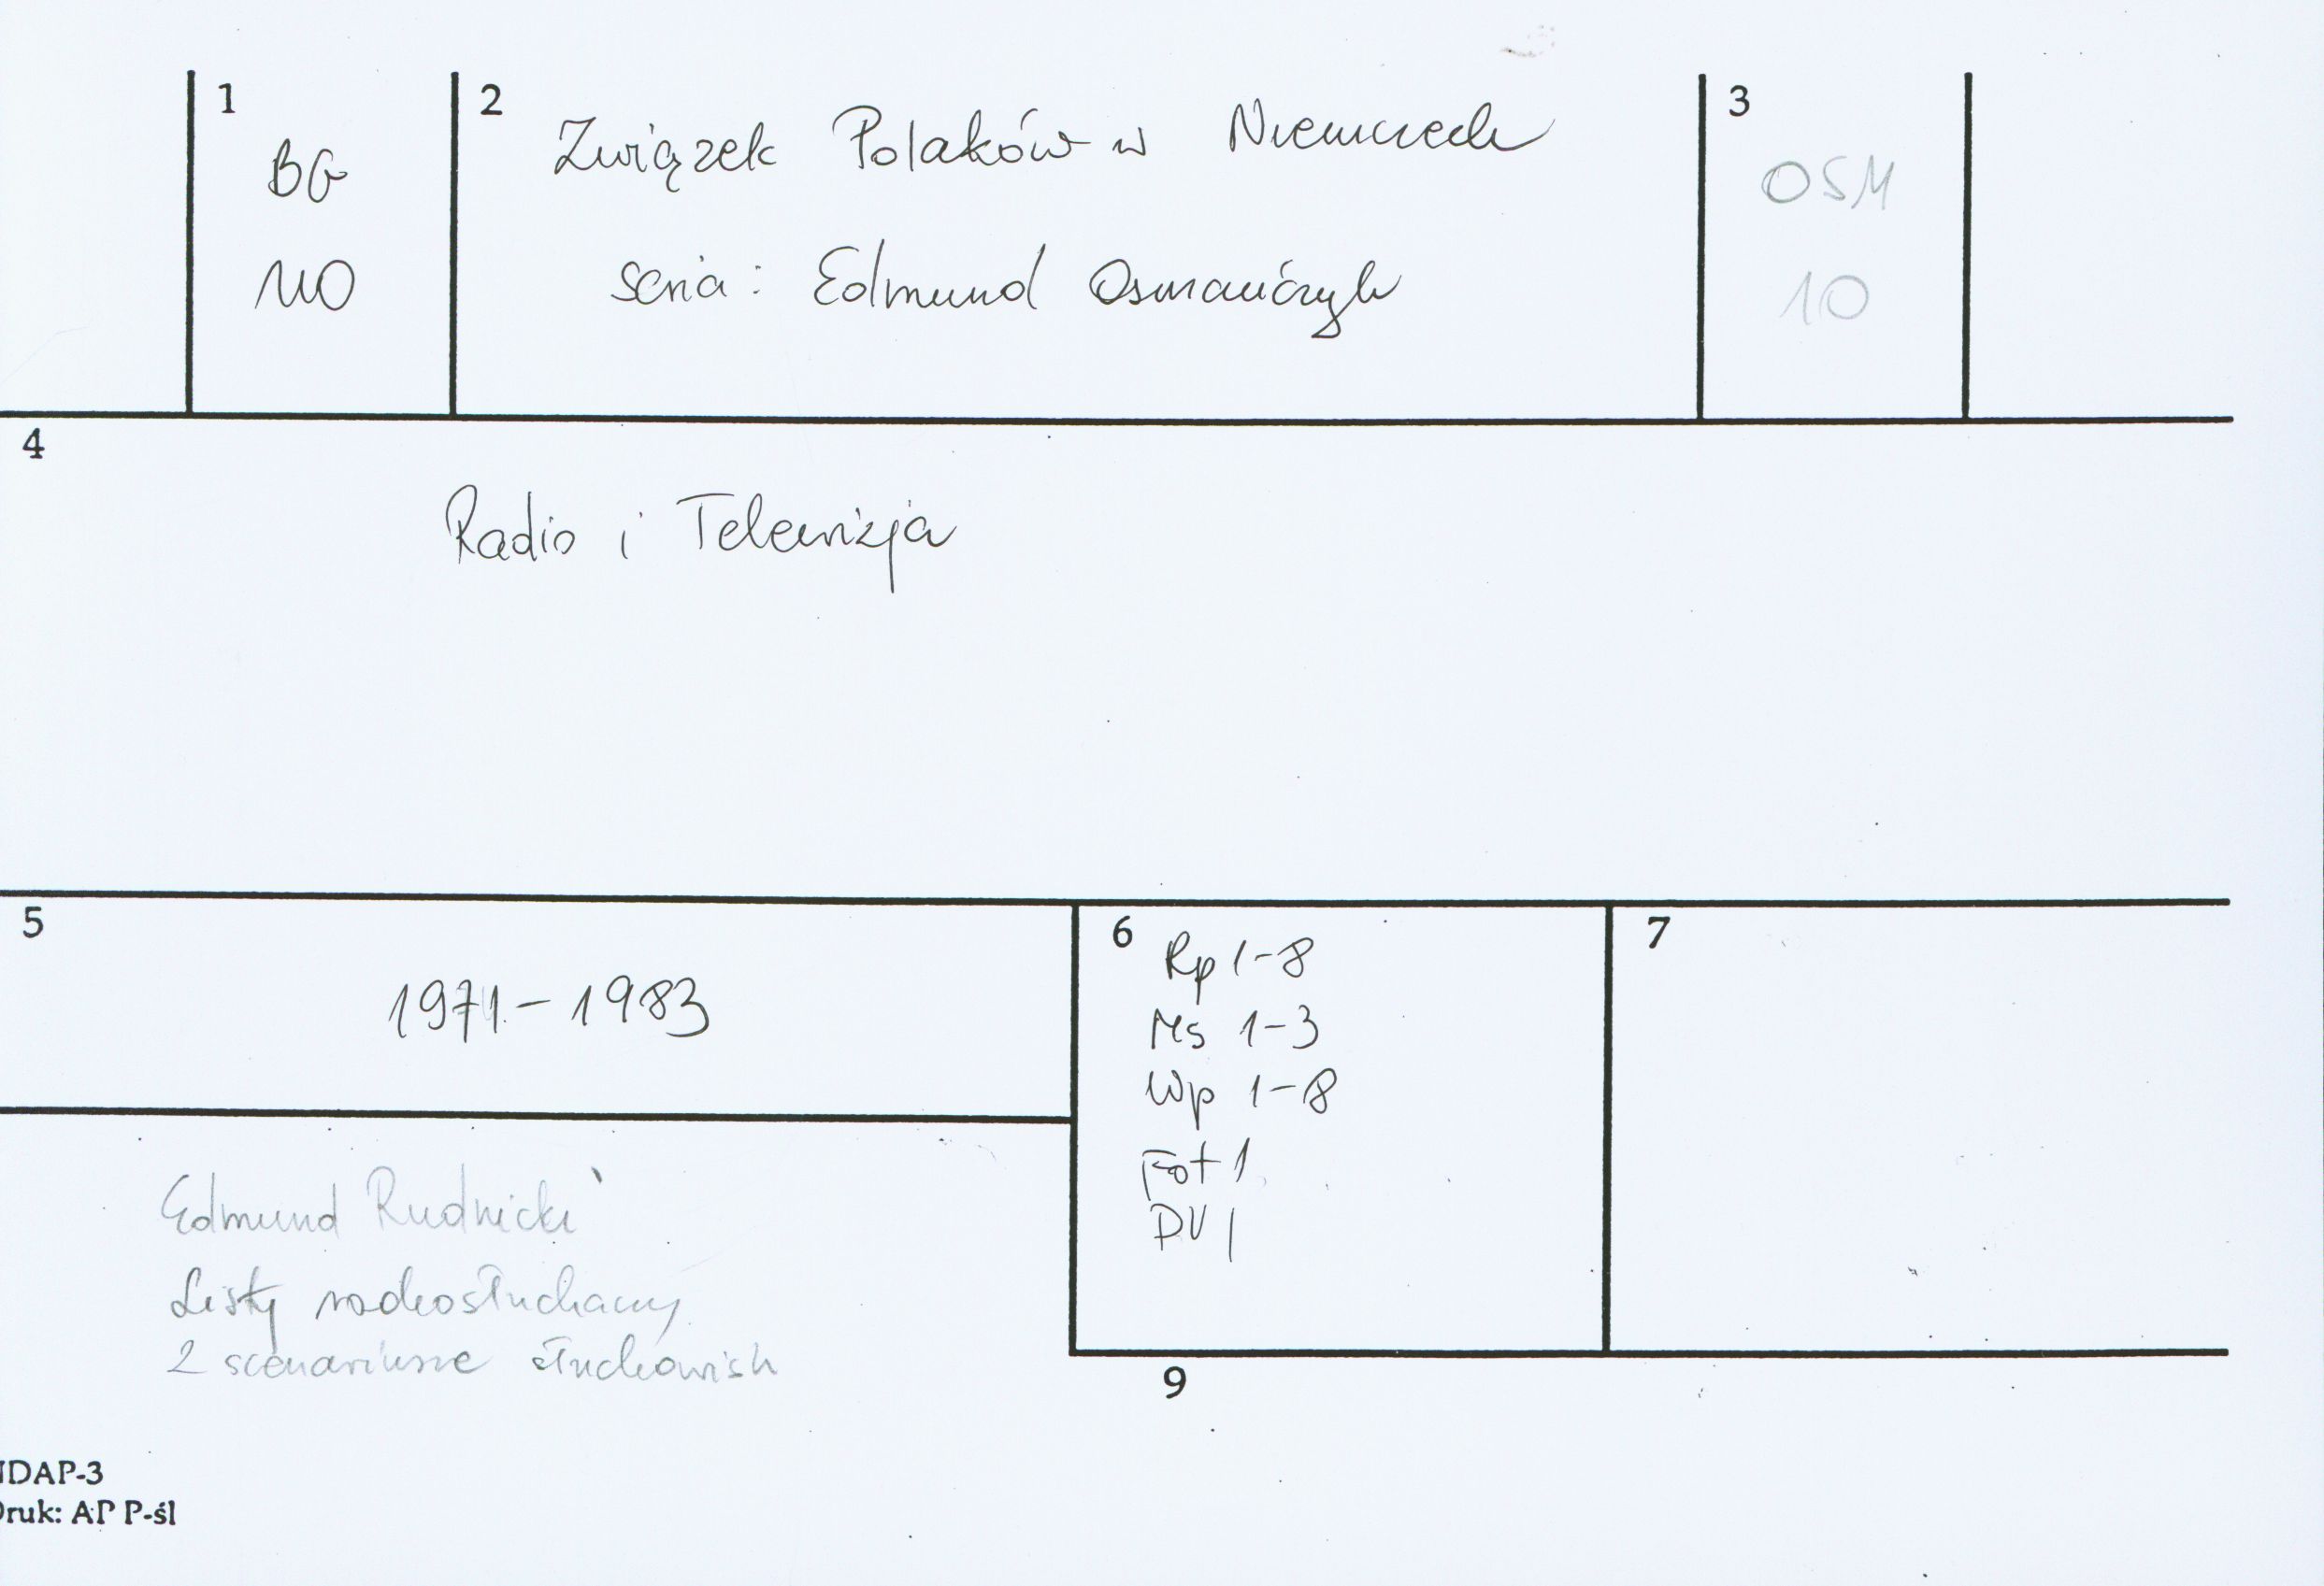 1
BG
110
2
Związek Polaków w Niemczech
seria: Edmund Osmańczyk
3
OSM
10
4
Radio i Telewizja
5
1971-1983
6
Rp 1-8
Ms 1-3
Wp 1-8
Fot 1
DV 1
7
Edmund Rudnicki
Listy radiosłuchaczy
2 scenariusze słuchowisk
9
NDAP-3
Druk: AP P-śl